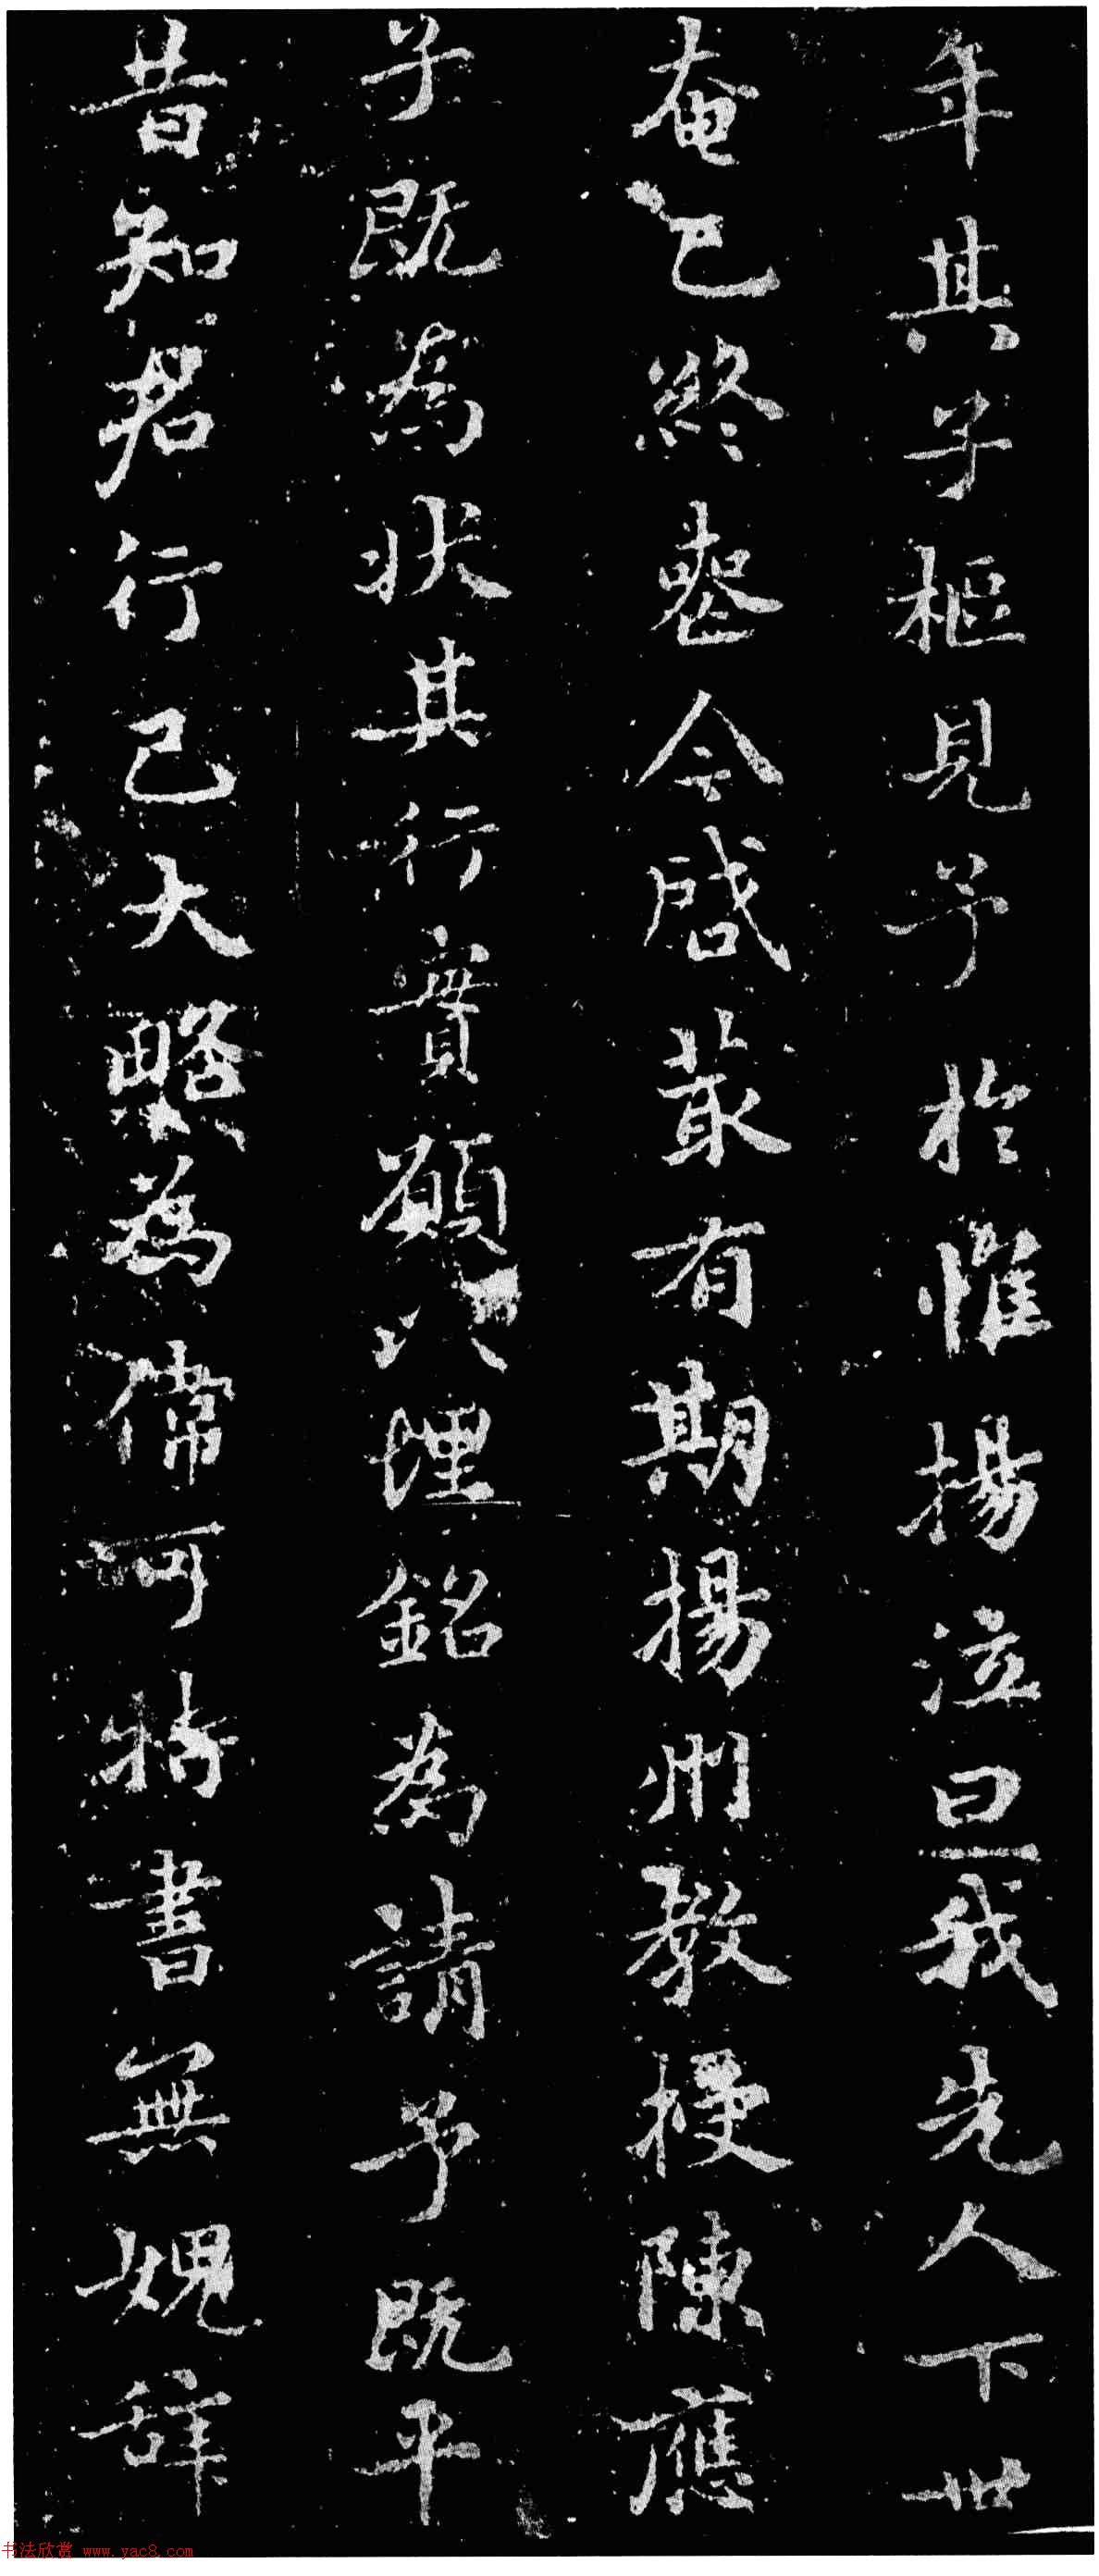 年其子樞見予於惟揚泣曰我先人下世
奄已終喪今啓菆有期揚州教授陳應
子既為狀其行實願以埋銘為請予既平
昔知君行己大略為儒可特書無愧辞
书法欣赏 www.yac8.com